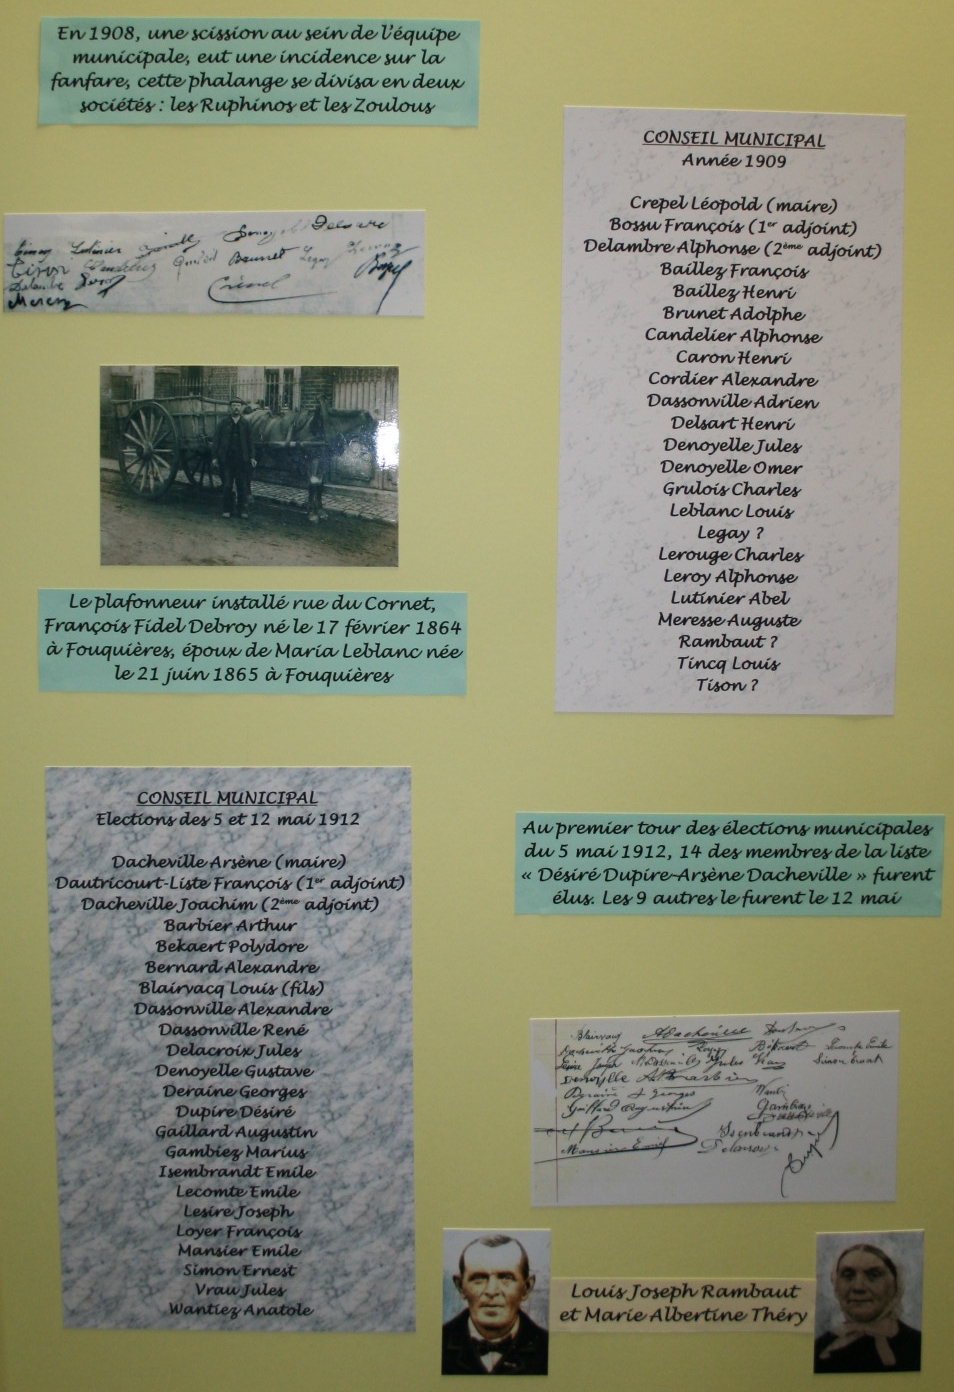 En 1908, une scission au sein de l'équipe
municipale, eut une incidence sur la
fanfare, cette phalange se divisa en deux
sociétés : les Ruphinos et les Zoulous
CONSEIL MUNICIPAL
Année 1909
Crepel Léopold (maire)
Bossu François (1er adjoint)
Delambre Alphonse (2ème adjoint)
Baillez François
Baillez Henri
Brunet Adolphe
Candelier Alphonse
Caron Henri
Cordier Alexandre
Dassonville Adrien
Delsart Henri
Denoyelle Jules
Denoyelle Omer
Grulois Charles
Leblanc Louis
Legay ?
Lerouge Charles
Leroy Alphonse
Lutinier Abel
Meresse Auguste
Rambaut ?
Tincq Louis
Tison ?
Le plafonneur installé rue du Cornet,
François Fidel Debroy né le 17 février 1864
à Fouquières, époux de Maria Leblanc née
le 21 juin 1865 à Fouquières
CONSEIL MUNICIPAL
Elections des 5 et 12 mai 1912
Dacheville Arsène (maire)
Dautricourt-Liste François (1er adjoint)
Dacheville Joachim (2ème adjoint)
Barbier Arthur
Bekaert Polydore
Bernard Alexandre
Blairvacq Louis (fils)
Dassonville Alexandre
Dassonville René
Delacroix Jules
Denoyelle Gustave
Deraine Georges
Dupire Désiré
Gaillard Augustin
Gambiez Marius
Isembrandt Emile
Lecomte Emile
Lesire Joseph
Loyer François
Mansier Emile
Simon Ernest
Vrau Jules
Wantiez Anatole
Au premier tour des élections municipales
du 5 mai 1912, 14 des membres de la liste
« Désiré Dupire-Arsène Dacheville » furent
élus. Les 9 autres le furent le 12 mai
Louis Joseph Rambaut
et Marie Albertine Théry